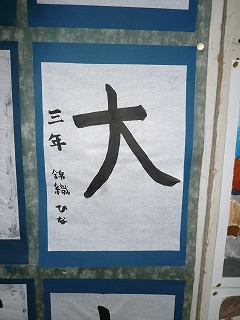 大
三年 錦織 ひな